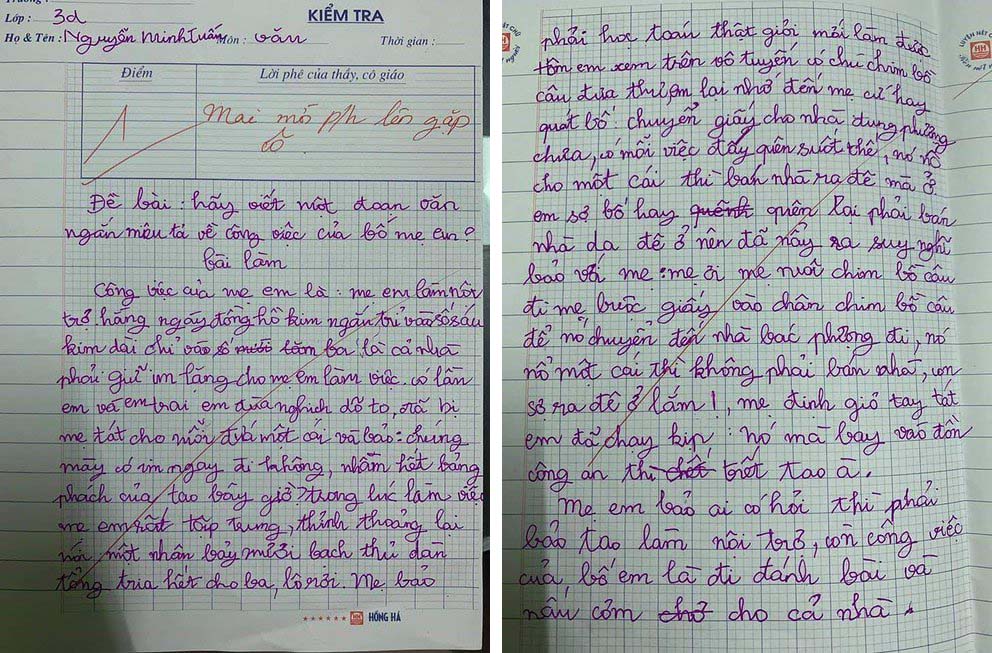 KIỂM TRA
Lớp : 3d
Họ & Tên : Nguyễn Minh Tuấn Môn : văn Thời gian :
Điểm Lời phê của thầy, cô giáo
Mai mỏ p/h lên gặp
cô
Đề bài : hãy viết một đoan văn
ngắn miêu tả về công việc của bố mẹ em?
bài làm
Công việc của mẹ em là : mẹ em làm nôi
trợ hằng ngày đồng hồ kim ngắn trỉ vào số sáu
kim dài chỉ vào số mười lăm ba là cả nhà
phải giữ im lăng cho mẹ em làm việc. có lần
em và em trai em đùa nghich dỗ to, đã bị
mẹ tát cho mỗi đứa một cái và bảo : chúng
mày có im ngay đi không, nhầm hết bảng
phách của tao bây giờ? trong lúc làm việc
mẹ em rất tâp trung, thỉnh thoảng lại
nói một nhân bảy mươi bach thủ dàn
tổng tria hết cho ba, lô rơi. Mẹ bảo
HỒNG HÀ
phải học toán thật giỏi mới làm được
tôn em xem trên vô tuyến có chú chim bồ
câu đưa thư em lại nhớ đến mẹ cứ hay
quat bố : chuyển giấy cho nhà dung phương
chưa, có mỗi việc đấy quên suốt thế, nó nổ
cho một cái thì ban nhà ra đê mà ở
em sợ bố hay quênh quên lai phải bán
nhà da đê ở nên đã nẩy ra suy nghĩ
bảo với mẹ : mẹ ơi mẹ nuôi chim bồ câu
đi mẹ buôc giấy vào chân chim bồ câu
để nó chuyển đến nhà bac phương đi, nó
nổ một cái thì không phải bán nhà, con
sợ ra đê ở lắm!, mẹ đinh giơ tay tát
em đã chay kip : nó mà bay vào đồn
công an thì chết triết tao à.
Mẹ em bảo ai có hỏi thì phải
bảo tao làm nôi trợ, còn công việc
của bố em là đi đánh bài và
nấu cơm chở cho cả nhà.